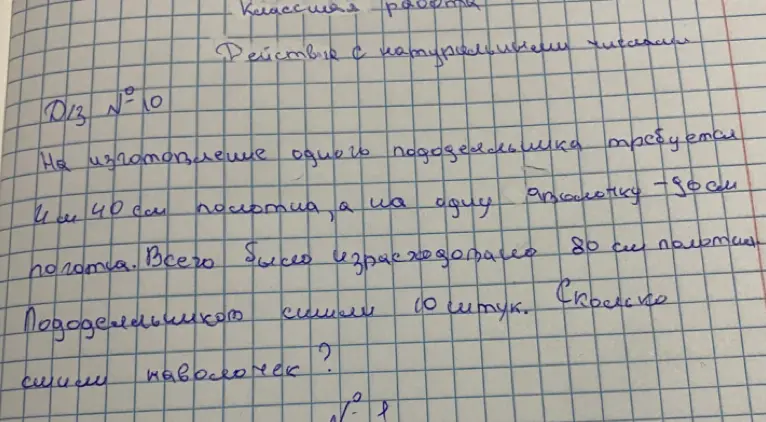 Классная работа
Действия с натуральными числами
Д/З № 10
На изготовление одного пододеяльника требуется
4 м 40 см полотна, а на одну наволочку - 90 см
полотна. Всего было израсходовано 80 см полотна.
Пододеяльников сшили 10 штук. Сколько
сшили наволочек?
№